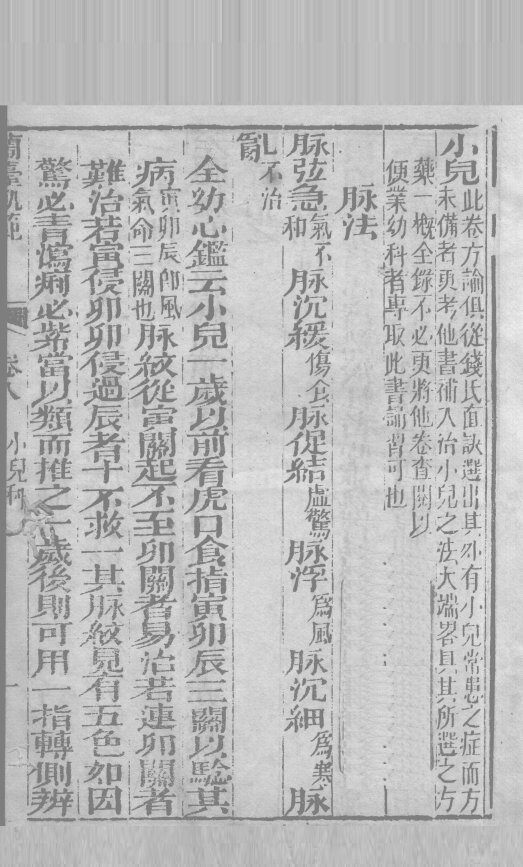 小兒此卷方論俱從錢氏直訣選出其外有小兒常患之症而方
未備者更考他書補入治小兒之法大端畧具其所選之方
藥一概全錄不必更將他卷查閱以
便業幼科者專取此書誦習可也
脉法
脉弦急氣不和 脉沉緩傷食 脉促結虛驚 脉浮爲風 脉沉細爲寒 脉
亂不治
全幼心鑑云小兒一歲以前看虎口食指寅卯辰三關以驗其
病寅卯辰卽風氣命三關也脉紋從寅關起不至卯關者易治若連卯關者
難治若寅侵卯卯侵過辰者十不救一其脉紋見有五色如因
驚必青瀉痢必紫當以類而推之一歲後則可用一指轉側辨
蘭臺軌範 卷八 小兒科 一